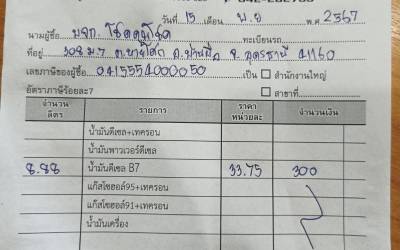 วันที่ 15 เดือน พ.ย พ.ศ. 2567
นามผู้ซื้อ บจก. โชคดูโชค ทะเบียนรถ
ที่อยู่ 308 ม.7 ต.นายูง อ.บ้านผือ จ.อุดรธานี 41160
เลขภาษีของผู้ซื้อ 0415554000050 เป็น สำนักงานใหญ่
อัตราภาษีร้อยละ7 สาขาที่
จำนวนลิตร รายการ ราคาหน่วยละ จำนวนเงิน
น้ำมันดีเซล+เทครอน
น้ำมันพาวเวอร์ดีเซล
8.88 น้ำมันดีเซล B7 33.75 300
แก๊สโซฮอล์95+เทครอน
แก๊สโซฮอล์91+เทครอน
น้ำมันเครื่อง